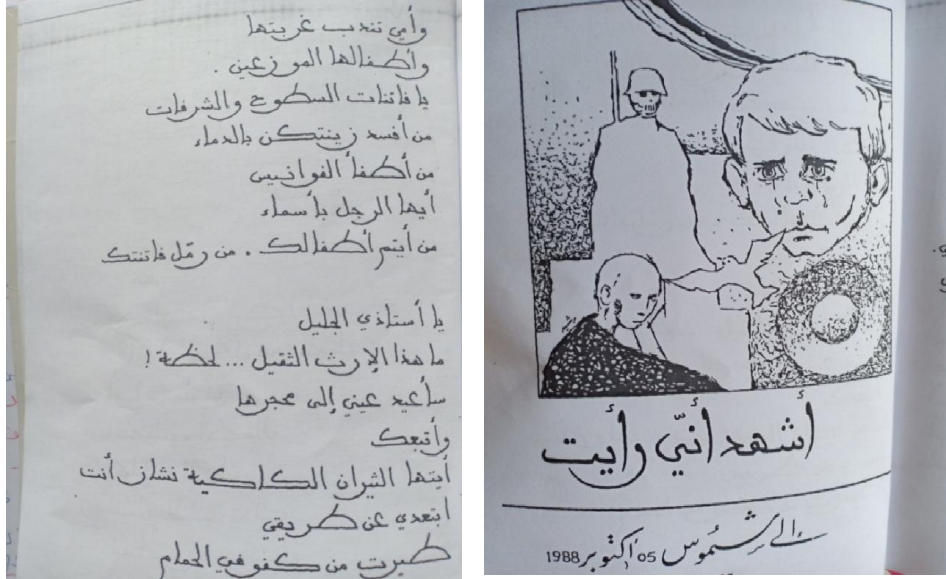 وأمي تندب غربتها
وأطفالها الموزعين .
يا فاتنات السطوح والشرفات
من أفسد زينتكن بالدماء
من أطفأ الفوانيس
أيها الرجل بأسماء
من أيتم أطفالك . من رمّل فاتنتك
يا أستاذي الجليل
ما هذا الإرث الثقيل ... لحظة !
سأعيد عيني إلى محجرها
وأتبعك
أيتها النيران الكاكية نشاز أنت
ابتعدي عن طريقي
طيرت من كفو في الحمام
أشهد أنّي رأيت
إلى شموس 05 أكتوبر 1988